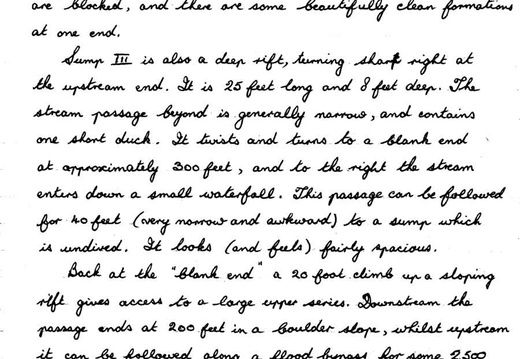 are blocked, and there are some beautifully clean formations
at one end.
Sump III is also a deep rift, turning sharp right at
the upstream end. It is 25 feet long and 8 feet deep. The
stream passage beyond is generally narrow, and contains
one short duck. It twists and turns to a blank end
at approximately 300 feet, and to the right the stream
enters down a small waterfall. This passage can be followed
for 40 feet (very narrow and awkward) to a sump which
is undived. It looks (and feels) fairly spacious.
Back at the "blank end" a 20 foot climb up a sloping
rift gives access to a large upper series. Downstream the
passage ends at 200 feet in a boulder slope, whilst upstream
it can be followed along a flood bypass for some 2,500